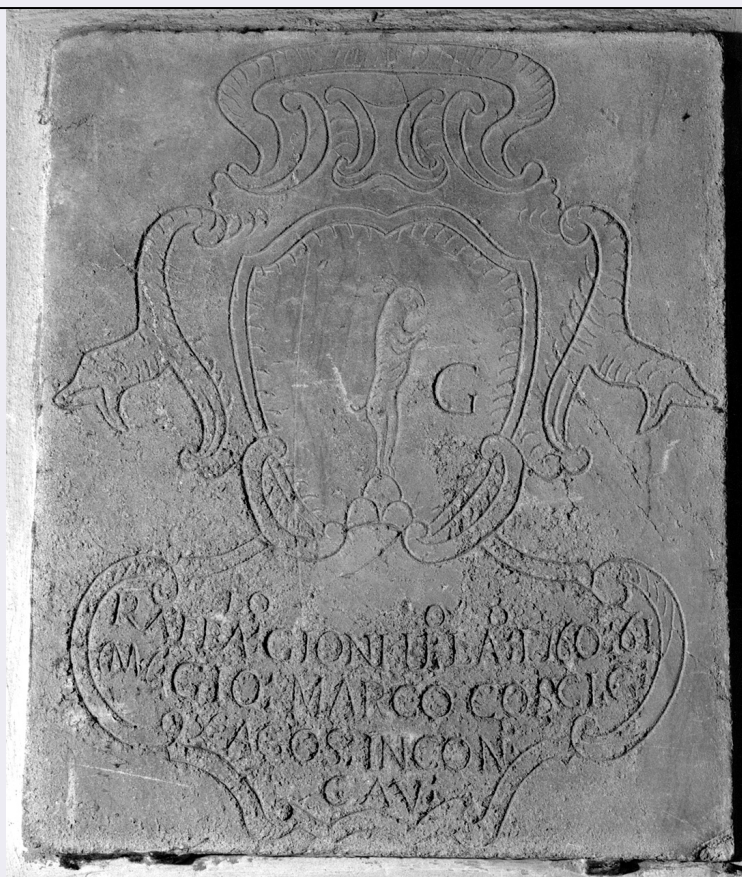 G
RAFFA: GIONFILLA: T 160: 61
GIO: MARCO COSCI C:
AGOS: IN CON
CAV: